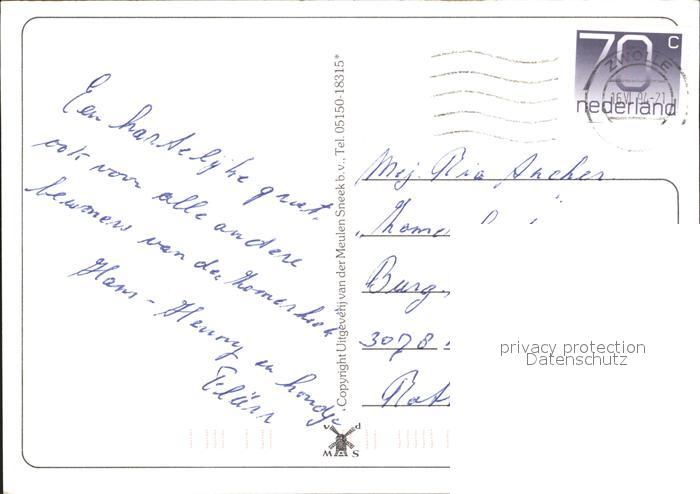 Een hartelijke groet,
ook voor alle andere
bewoners van de Zomerhoek
Hans - Henny en hondje
Copyright Uitgeverij van der Meulen Sneek b.v., Tel. 05150-18315*
v d
M A S
70 c
nederland
ZWOLLE
Mej. Ria
Burg.
3078
Rott
privacy protection
Datenschutz